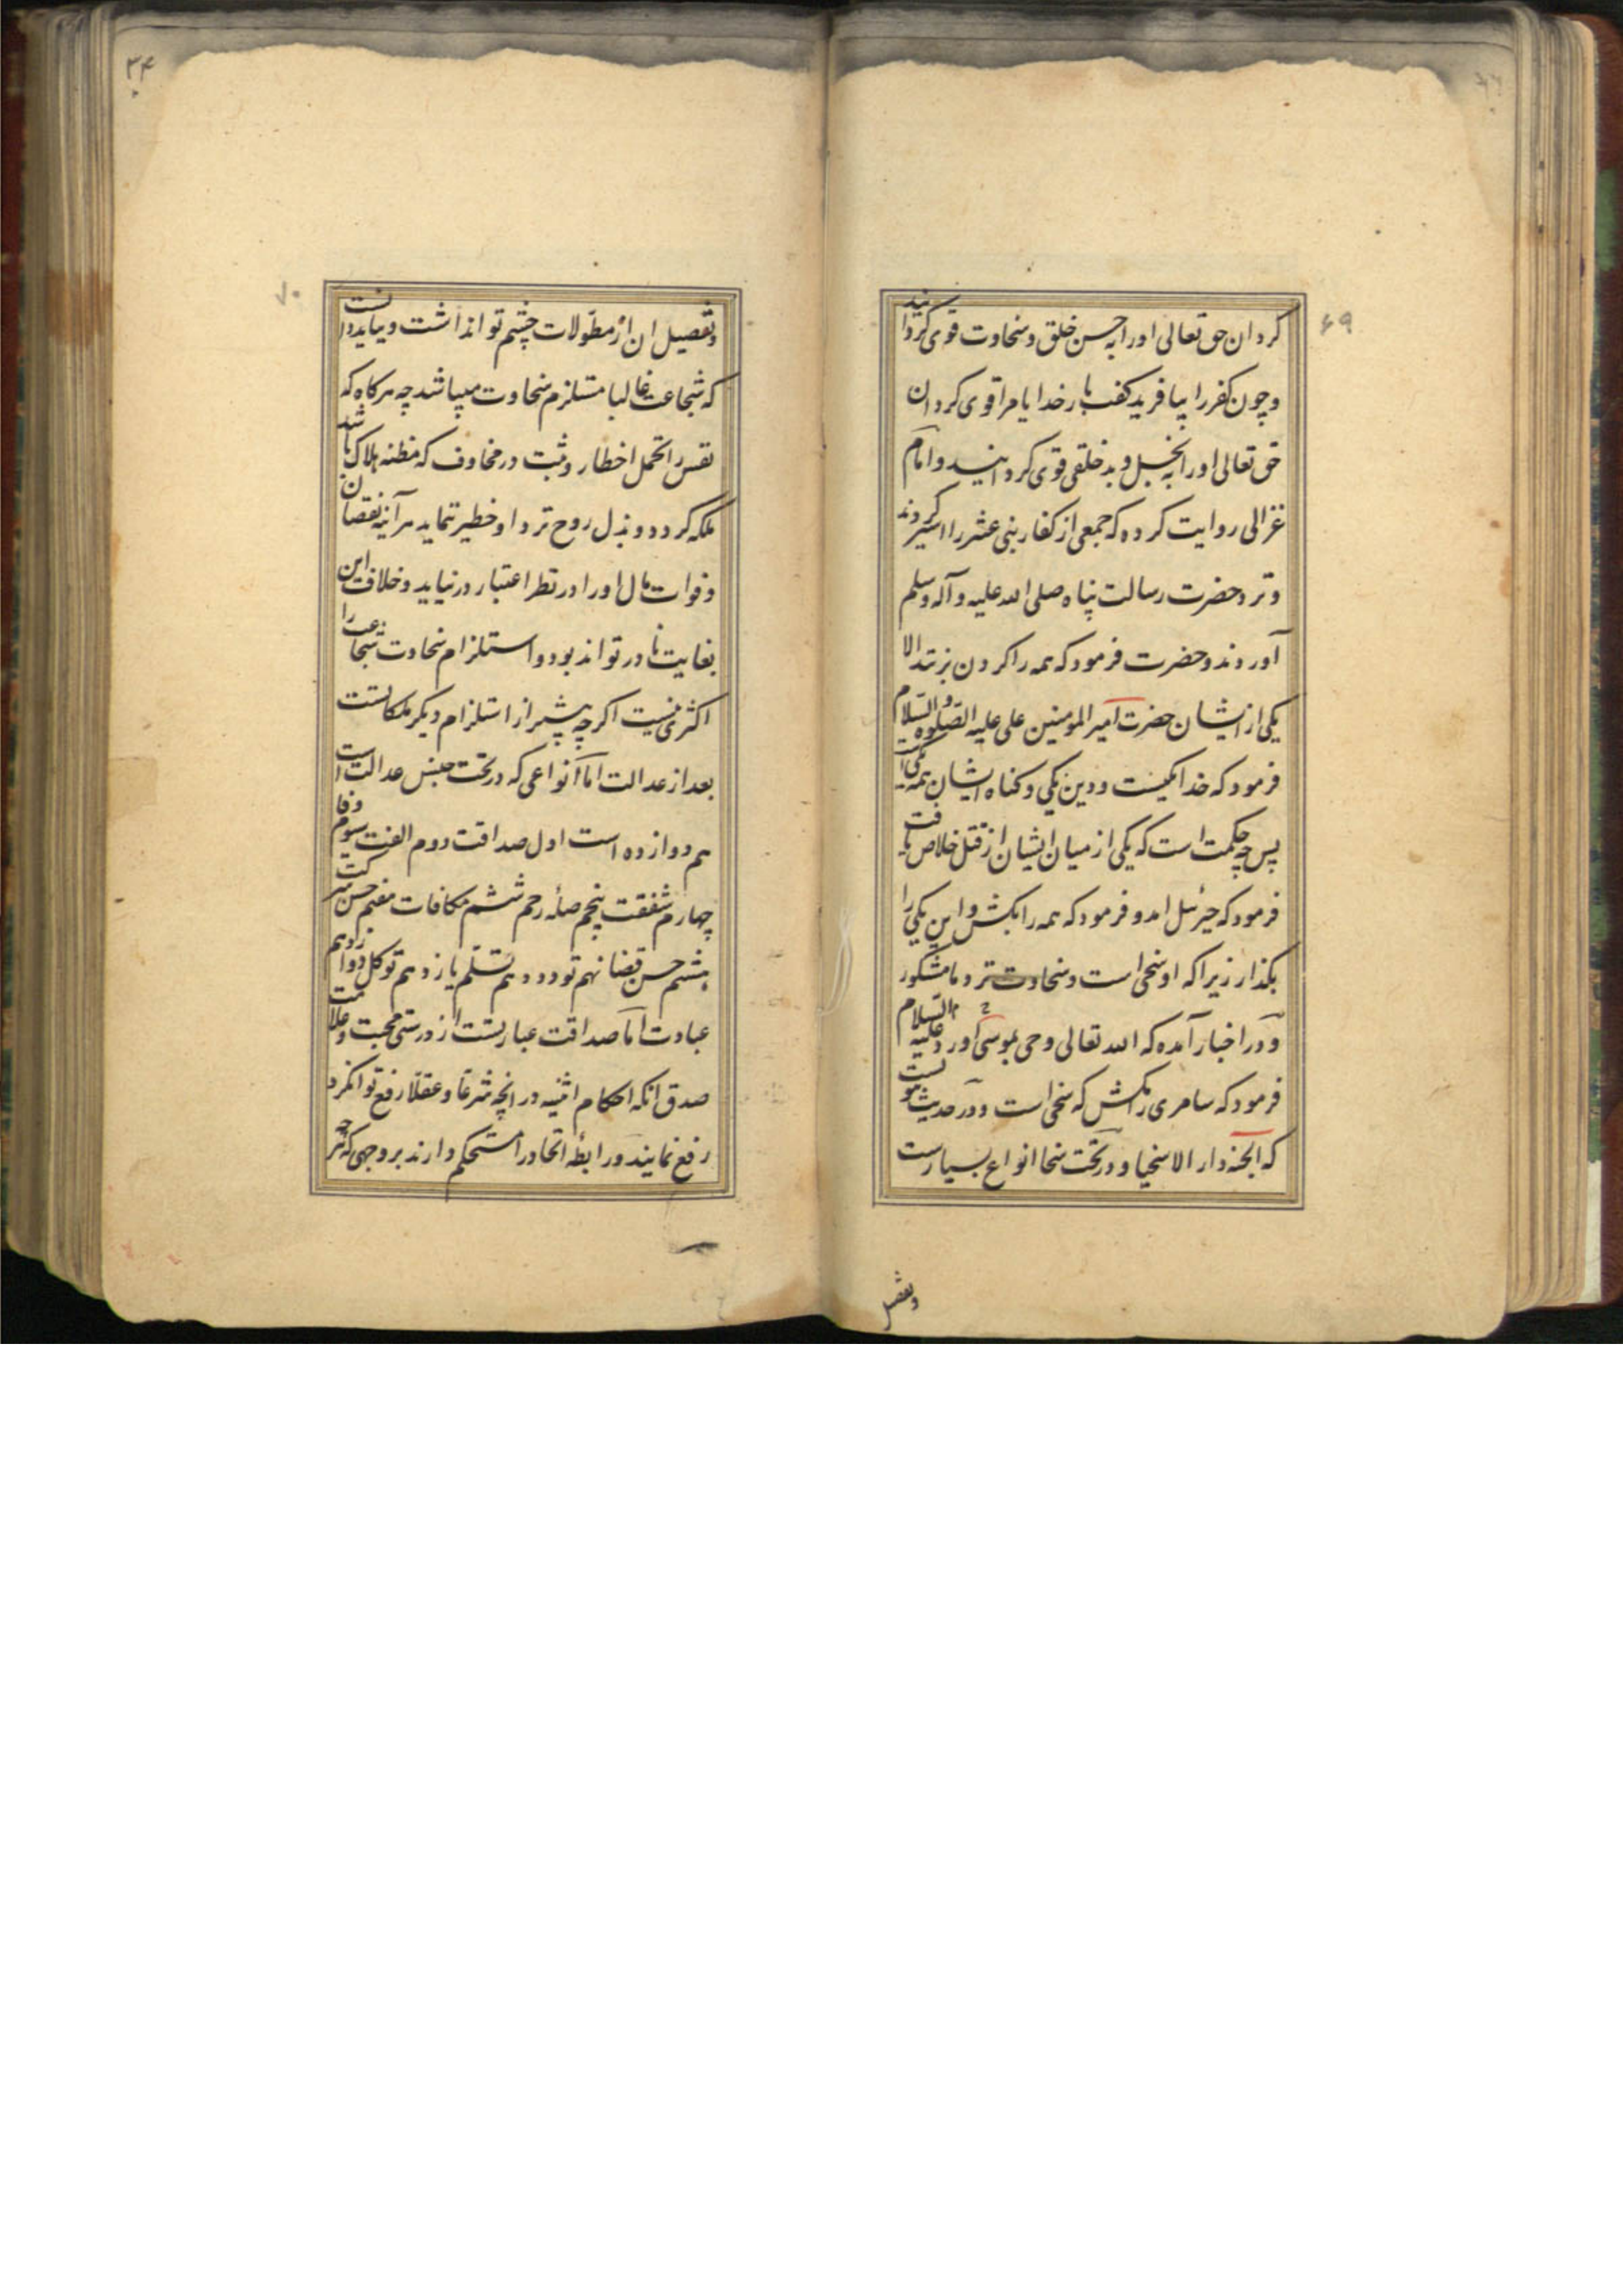 ۶۹
کردان حق تعالی اورا به حسن خلق و سخاوت قوی کردانید
و چون کفر را بیافرید کفت بار خدایا مرا قوی کردان
حق تعالی اورا به بخل و بد خلقی قوی کردانید و امام
غزالی روایت کرده که جمعی از کفار بنی عشر را اسیر کردند
و نزد حضرت رسالت پناه صلی الله علیه و آله وسلم
آوردند و حضرت فرمود که همه را کردن بزنند الا
یکی از ایشان حضرت امیر المومنین علی علیه الصلوه و السلام
فرمود که خدا یکیست و دین یکی و کناه ایشان همه یکی
پس چه حکمت است که یکی از میان ایشان از قتل خلاص یافت
فرمود که جبرئیل امد و فرمود که همه را بکش و این یکی را
بکذار زیرا که او سخی است و سخاوت نزد ما مشکور
و در اخبار آمده که الله تعالی وحی بموسی اورد علیه السلام
فرمود که سامری را مکش که سخی است و در حدیث نبویست
که الجنه دار الاسخیا و در تحت سخا انواع بسیارست
وتفصیل
۳۴
۷۰
وتفصیل ان از مطولات چشم تواند داشت و بباید دانست
که شجاعت غالبا مستلزم سخاوت میباشد چه هرکاه که
نفس را تحمل اخطار و ثبت در مخاوف که مظنه هلاک باشد
ملکه کردد و بذل روح نزد او خطیر ننماید هر آینه نقصان
و فوات مال اورا در نظر اعتبار در نیاید و خلاف این
بغایت نادر تواند بود و استلزام سخاوت شجاعت را
اکثری نیست اکرچه بیشتر از استلزام دیکر ملکاتست
بعد از عدالت اما انواعی که در تحت جنس عدالت است
هم دوازده است اول صداقت دوم الفت سیوم وفا
چهارم شفقت پنجم صله رحم ششم مکافات هفتم حسن شرکت
هشتم حسن قضا نهم تودد دهم تسلیم یازدهم توکل دوازدهم
عبادت اما صداقت عبارتست از درستی محبت و علامت
صدق انکه احکام اثنینیه در انچه شرعا و عقلا رفع توانکرد
رفع نمایند و رابطه اتحاد را مستحکم دارند بر وجهی که هر چه